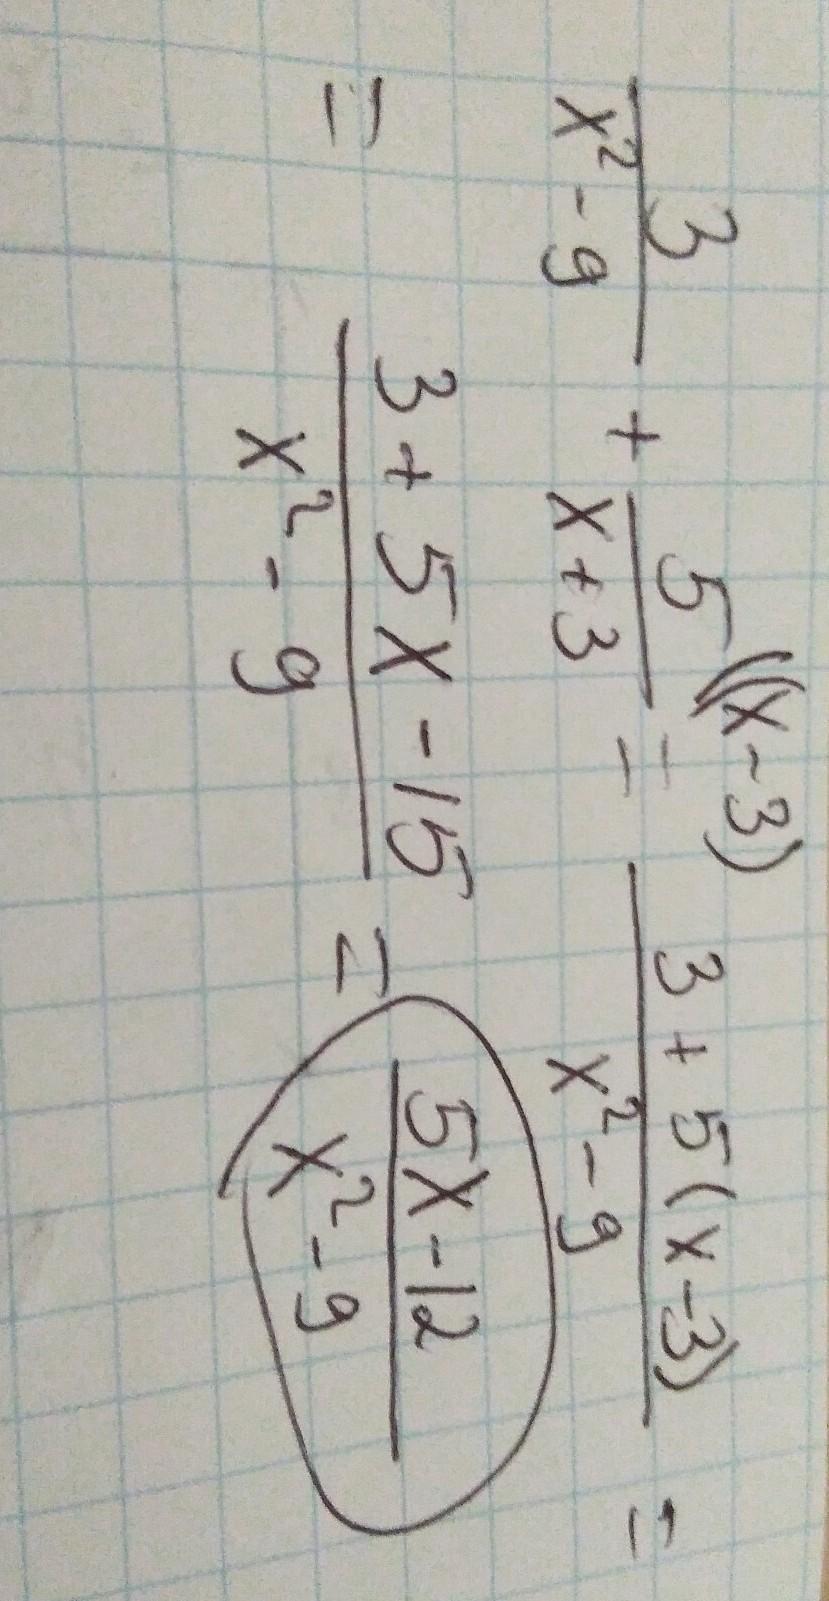 3/(x² - 9) + 5((x - 3)/(x + 3) = (3 + 5(x - 3))/(x² - 9) =
= (3 + 5x - 15)/(x² - 9) = (5x - 12)/(x² - 9)